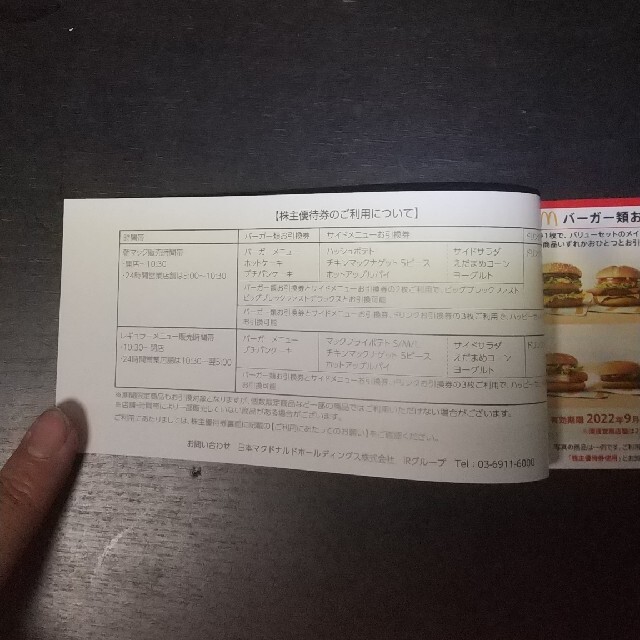 【株主優待券のご利用について】
時間帯 バーガー類お引換券 サイドメニューお引換券
朝マック販売時間帯
開店～10:30
・24時間営業店舗は5:00～10:30
バーガーメニュー
ホットケーキ
プチパンケーキ
ハッシュポテト
チキンマックナゲット 5ピース
ホットアップルパイ
サイドサラダ
えだまめコーン
ヨーグルト
バーガー類お引換券とサイドメニューお引換券の2枚ご利用で、ビッグブレックファスト
ビッグブレックファストデラックスとお引換可能
バーガー類お引換券とサイドメニューお引換券、ドリンクお引換券の3枚ご利用で、ハッピー
お引換可能
レギュラーメニュー販売時間帯
10:30～閉店
・24時間営業店舗は10:30～翌5:00
バーガーメニュー
プチパンケーキ
マックフライポテト S/M/L
チキンマックナゲット 5ピース
ホットアップルパイ
サイドサラダ
えだまめコーン
ヨーグルト
バーガー類お引換券とサイドメニューお引換券、ドリンクお引換券の3枚ご利用で、ハッピー
お引換可能
※期間限定商品もお引換対象となりますが、個数限定商品など一部の商品ではご利用いただけない場合がございます。
※店舗・時間帯により一部販売していない商品がある場合がございます。
ご利用にあたりましては、株主優待券裏面に記載の【ご利用にあたってのお願い】をご確認ください。
お問い合わせ 日本マクドナルドホールディングス株式会社 IRグループ Tel:03-6911-6000
バーガー類お
1枚で、バリューセットのメイ
商品いずれかおひとつとお引
有効期限 2022年9月
写真の商品は一例です。ご利用
「株主優待券使用」とお